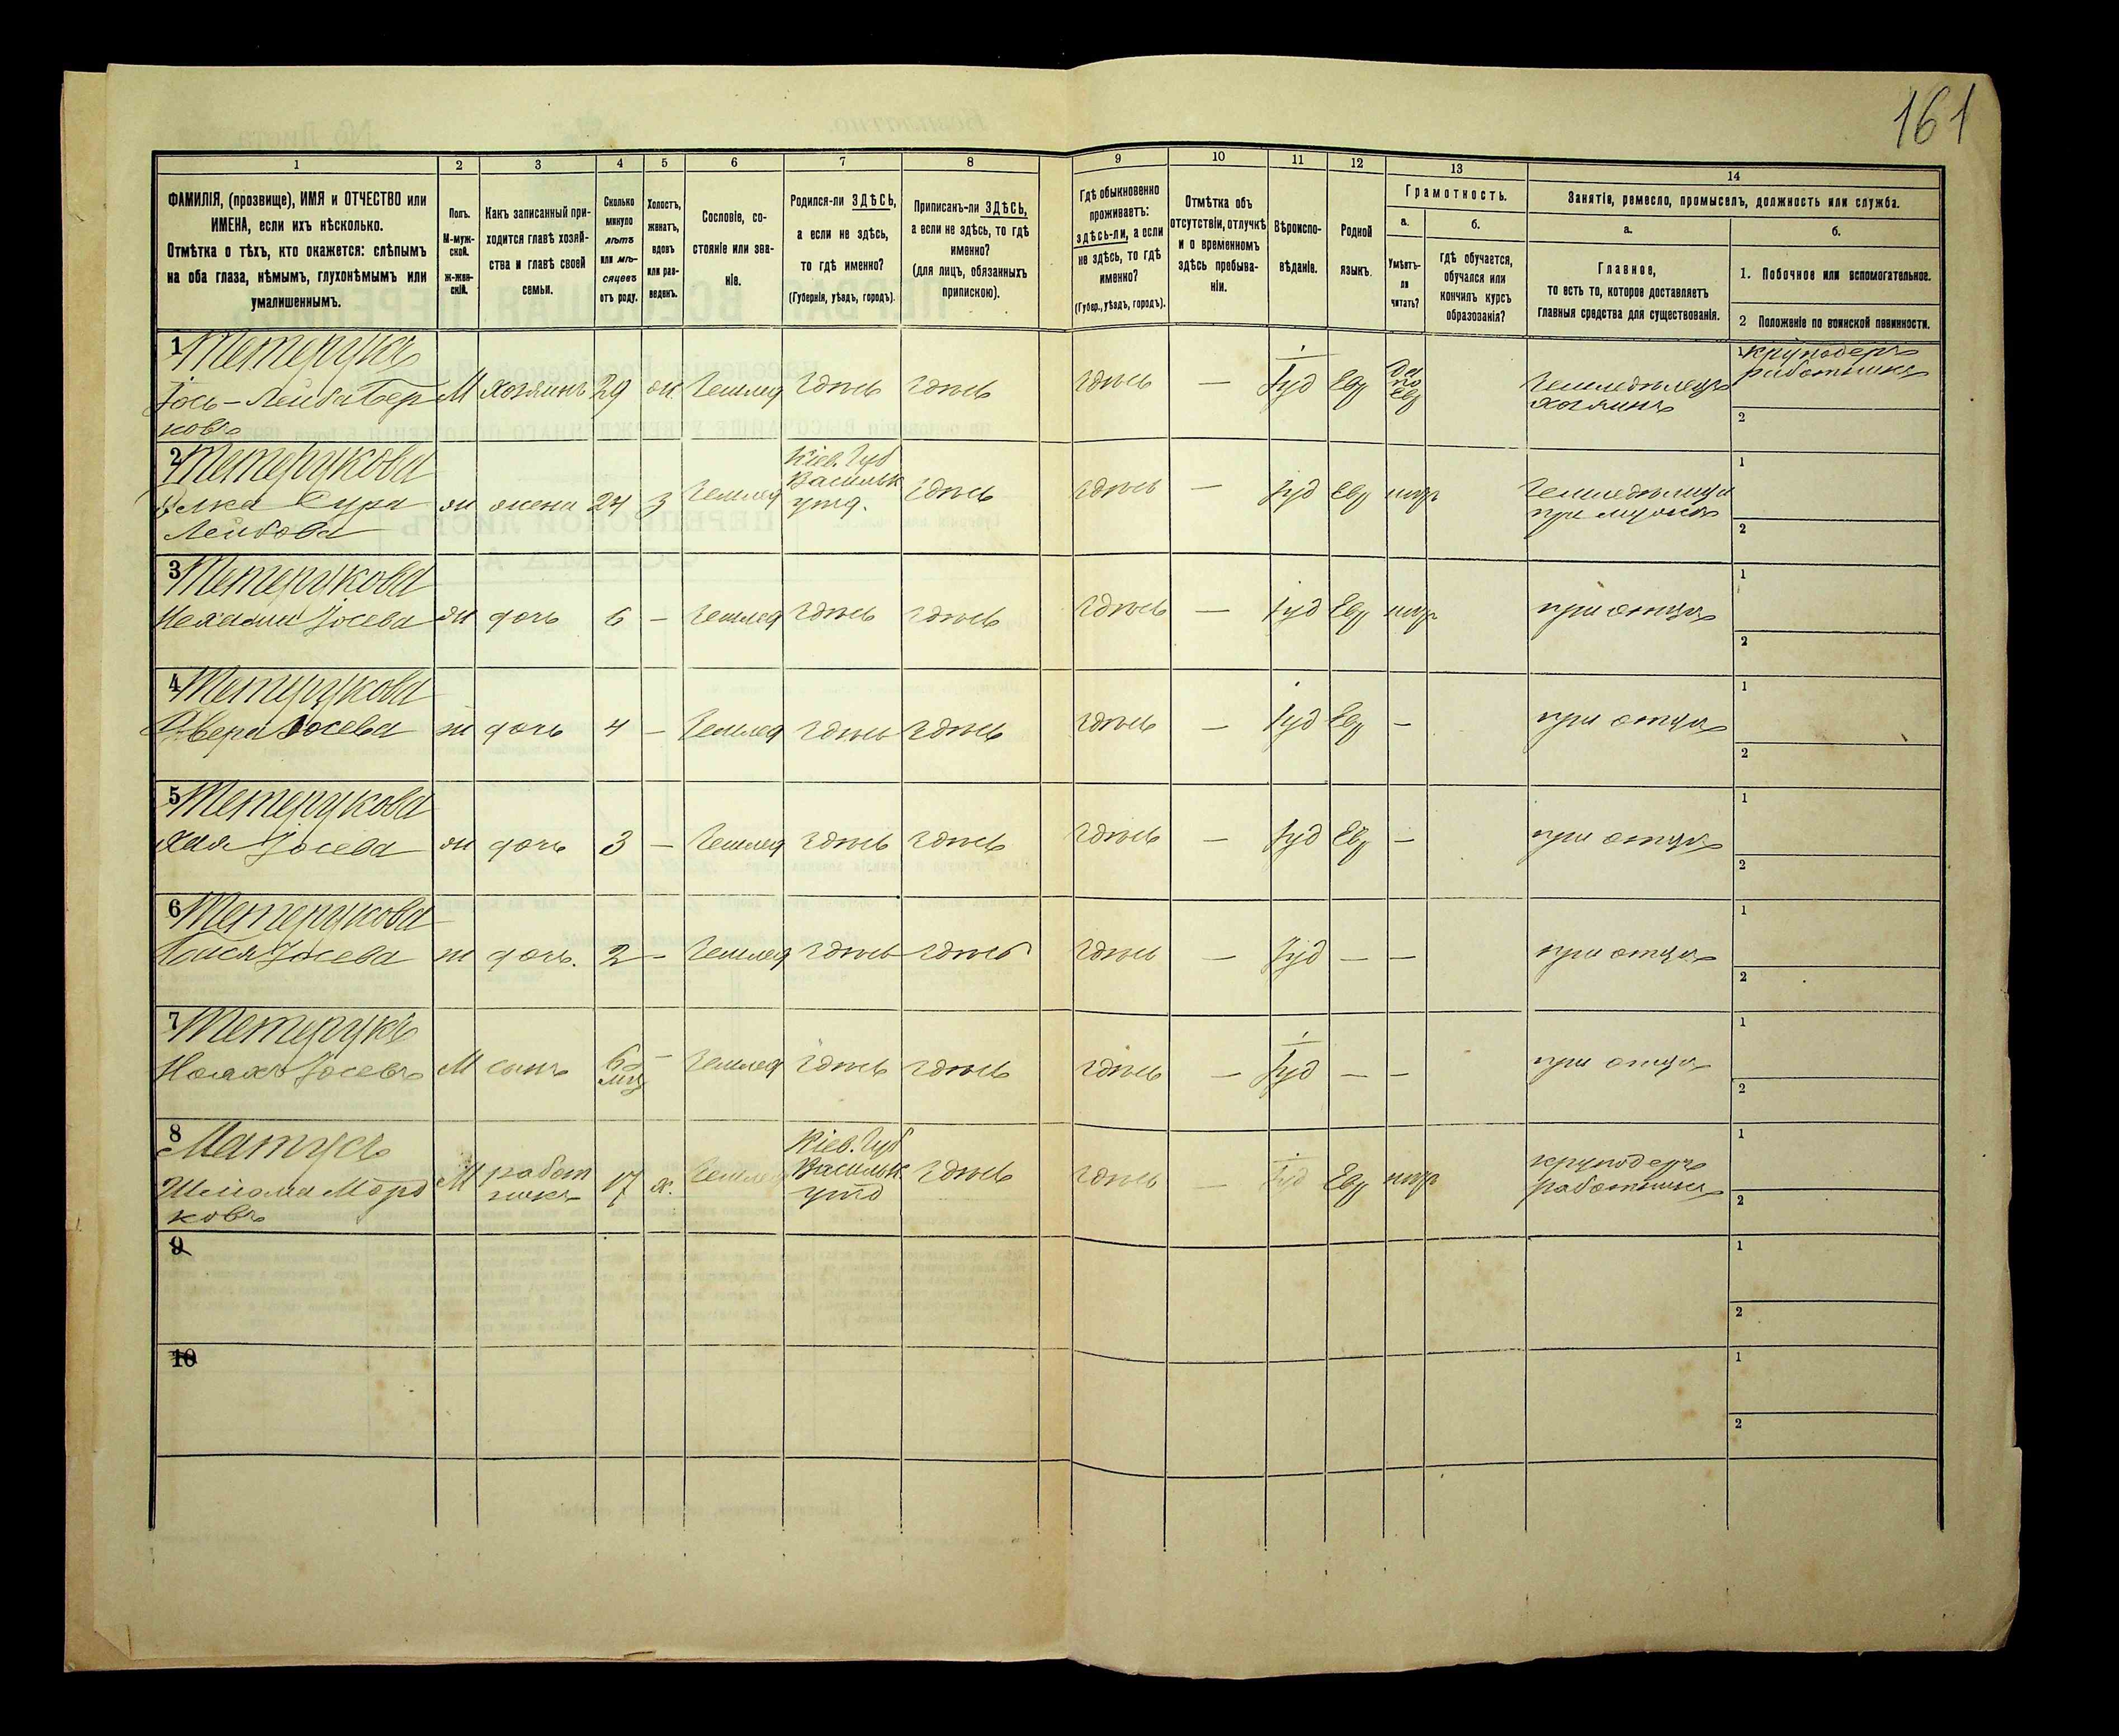 161
1 2 3 4 5 6 7 8 9 10 11 12 13 14
ФАМИЛІЯ, (прозвище), ИМЯ и ОТЧЕСТВО или
ИМЕНА, если ихъ нѣсколько.
Отмѣтка о тѣхъ, кто окажется: слѣпымъ
на оба глаза, нѣмымъ, глухонѣмымъ или
умалишеннымъ.
Полъ.
М-муж-
ской.
Ж-жен-
скій.
Какъ записанный при-
ходится главѣ хозяй-
ства и главѣ своей
семьи.
Сколько
минуло
лѣтъ
или мѣ-
сяцевъ
отъ роду.
Холостъ,
женатъ,
вдовъ
или раз-
веденъ.
Сословіе, со-
стояніе или зва-
ніе.
Родился-ли ЗДѢСЬ,
а если не здѣсь,
то гдѣ именно?
(Губернія, уѣздъ, городъ).
Приписанъ-ли ЗДѢСЬ,
а если не здѣсь, то гдѣ
именно?
(для лицъ, обязанныхъ
припискою).
Гдѣ обыкновенно
проживаетъ:
здѣсь-ли, а если
не здѣсь, то гдѣ
именно?
(Губер., уѣздъ, городъ).
Отмѣтка объ
отсутствіи, отлучкѣ
и о временномъ
здѣсь пребыва-
ніи.
Вѣроиспо-
вѣданіе.
Родной
языкъ.
Грамотность.
а.
Умѣетъ-
ли
читать?
б.
гдѣ обучается,
обучался или
кончилъ курсъ
образованія?
Занятіе, ремесло, промыселъ, должность или служба.
а.
Главное,
то есть то, которое доставляетъ
главныя средства для существованія.
б.
1. Побочное или вспомогательное.
2 Положеніе по воинской повинности.
1 Тетерукъ
Іось-Лейба Бер
ковъ
М хозяинъ 29 ж. Землед здѣсь здѣсь здѣсь — Іуд Евр
да
по
Евр
Земледѣлецъ
хозяинъ
1 круподеръ
работникъ
2
2 Тетерукова
Сура
Лейбова
ж жена 24 з Землед
Кіев. Губ
Васильк
уѣзд.
здѣсь здѣсь — Іуд Евр негр
Земледѣлица
при мужѣ
1
2
3 Тетерукова
Нехама Іосева ж дочь 6 — Землед здѣсь здѣсь здѣсь — Іуд Евр негр при отцѣ
1
2
4 Тетерукова
Двера Іосева ж дочь 4 — Землед здѣсь здѣсь здѣсь — Іуд Евр — при отцѣ
1
2
5 Тетерукова
Хая Іосева ж дочь 3 — Землед здѣсь здѣсь здѣсь — Іуд Евр — при отцѣ
1
2
6 Тетерукова
Бася Іосева ж дочь. 2 — Землед здѣсь здѣсь здѣсь — Іуд — — при отцѣ
1
2
7 Тетерукъ
Іосевъ М сынъ 6 — Землед здѣсь здѣсь здѣсь — Іуд — — при отцѣ
мѣс
1
2
8 Матусъ
Шліома Мордковъ
М
работ
никъ
17 х. Землед
Кіев. Губ
Васильк
уѣзд
здѣсь здѣсь — Іуд Евр негр
круподеръ
работникъ
1
2
9
1
2
10
1
2